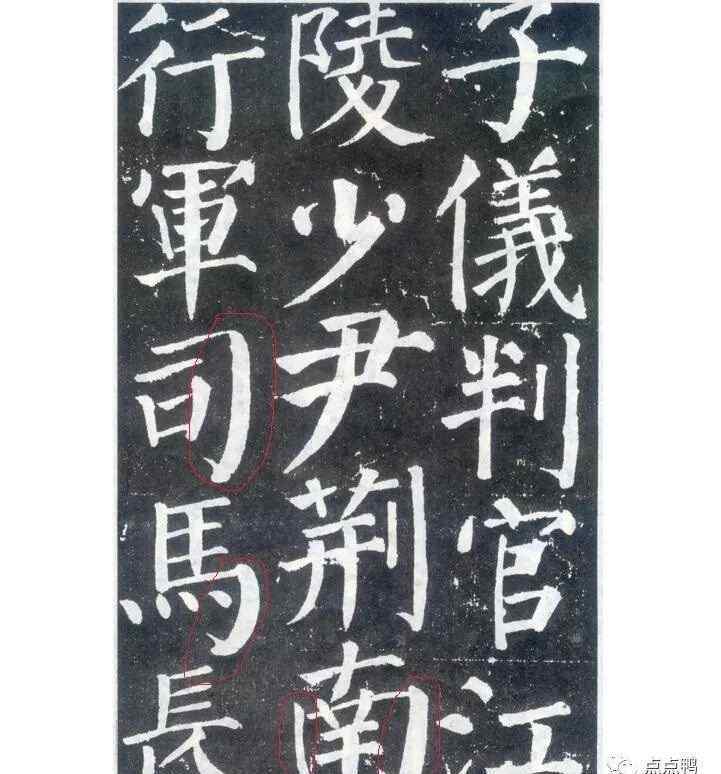 子儀判官江
陵少尹荆南
行軍司馬長
点点鸭